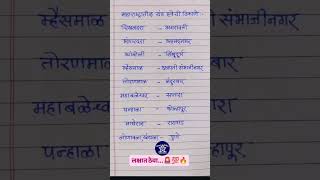 महाराष्ट्रातील थंड हवेची ठिकाणे -
चिखलदरा - अमरावती
भंडारदरा - अहमदनगर
आंबोली - सिंधुदुर्ग
म्हैसमाळ - छत्रपती संभाजीनगर
तोरणमाळ - नंदुरबार
महाबळेश्वर - सातारा
पन्हाळा - कोल्हापूर
माथेरान - रायगड
लोणावळा खंडाळा - पुणे
लक्षात ठेवा...🚨💯🔥